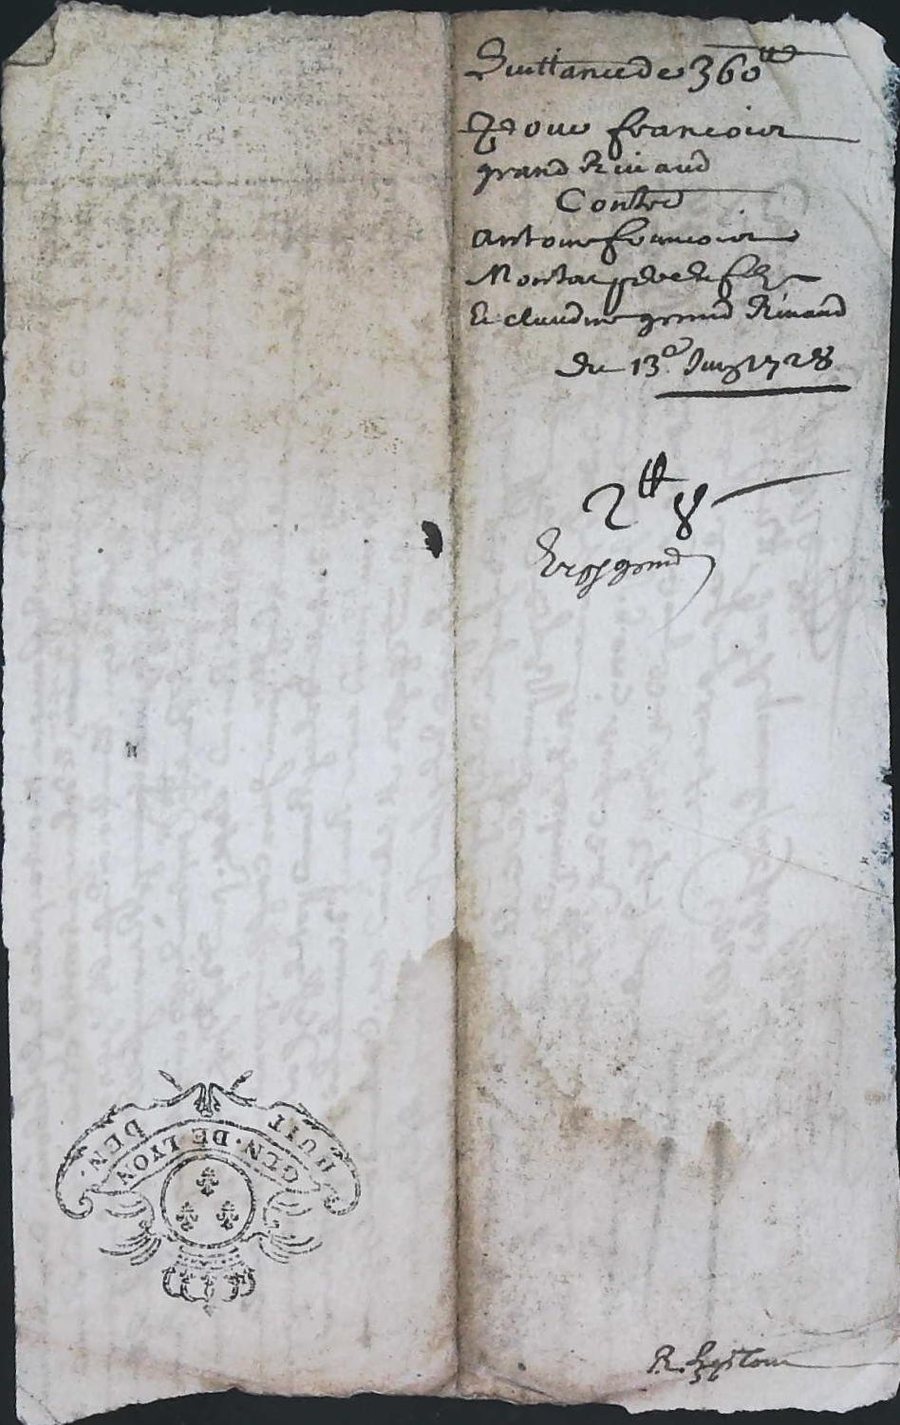 Quittance de 360ᵗᵗ
Pour francoise
grand Rivaud
Contre
Antoine francoise
Montar pere et fils
Et claudine grand Rivaud
Du 13ᵉ Juin 1728
2ᵗᵗ 8
grand
HUIT DEN.
GEN. DE LYON
R.